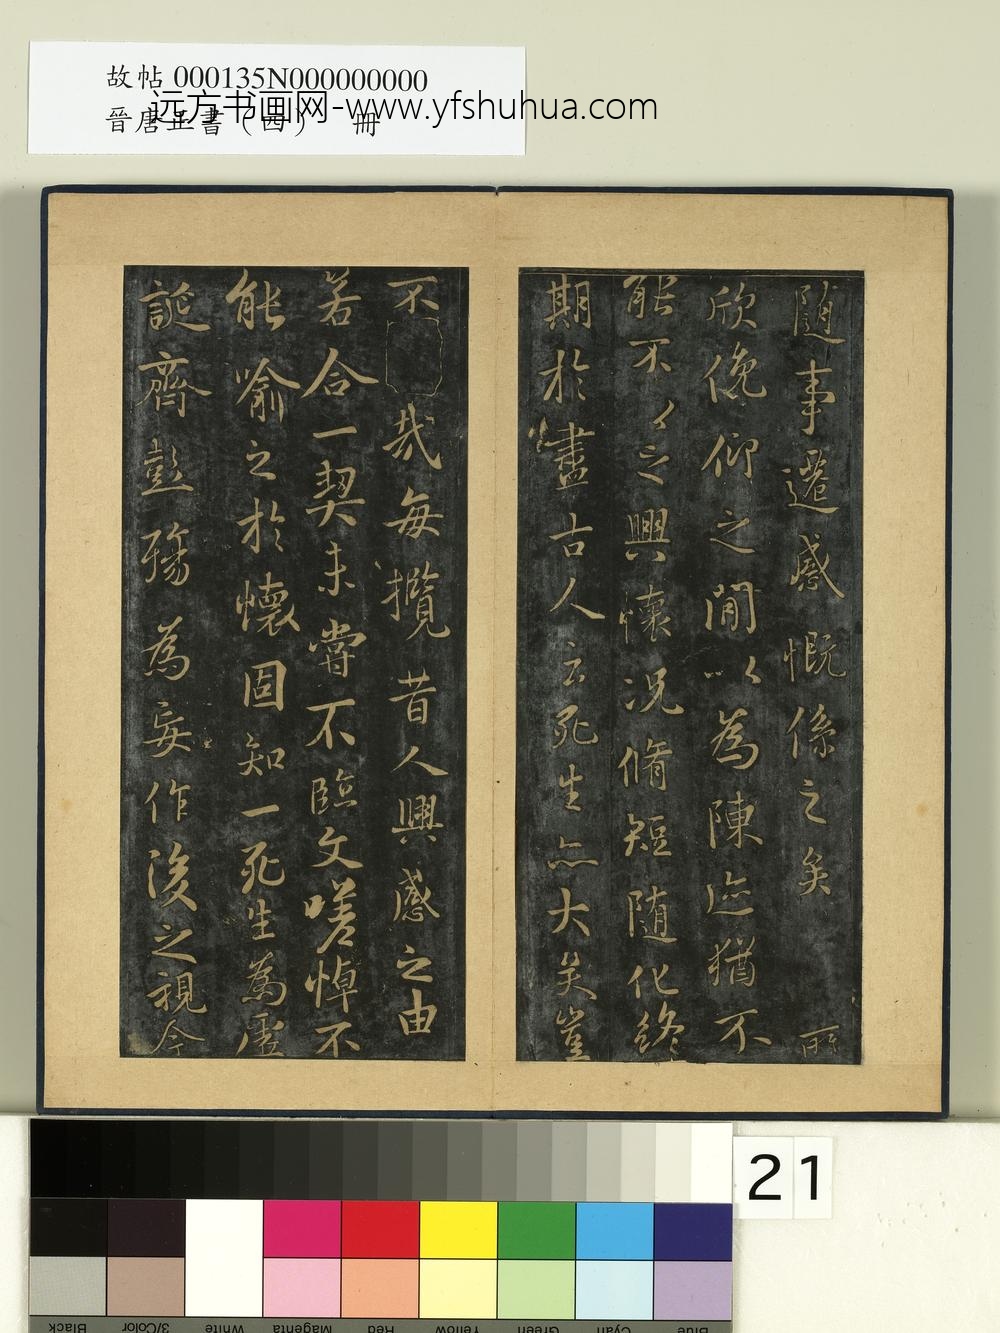 故帖 000135N000000000
晉唐正書（四） 冊
远方书画网-www.yfshuhua.com
隨事遷感慨係之矣 所
欣俛仰之閒以為陳迹猶不
能不以之興懷況脩短隨化終
期於盡古人云死生亦大矣豈
不 哉每攬昔人興感之由
若合一契未嘗不臨文嗟悼不
能喻之於懷固知一死生為虛
誕齊彭殤為妄作後之視今
21
Black
3/Color
White
Magenta
Red
Yellow
Green
Cyan
Blue